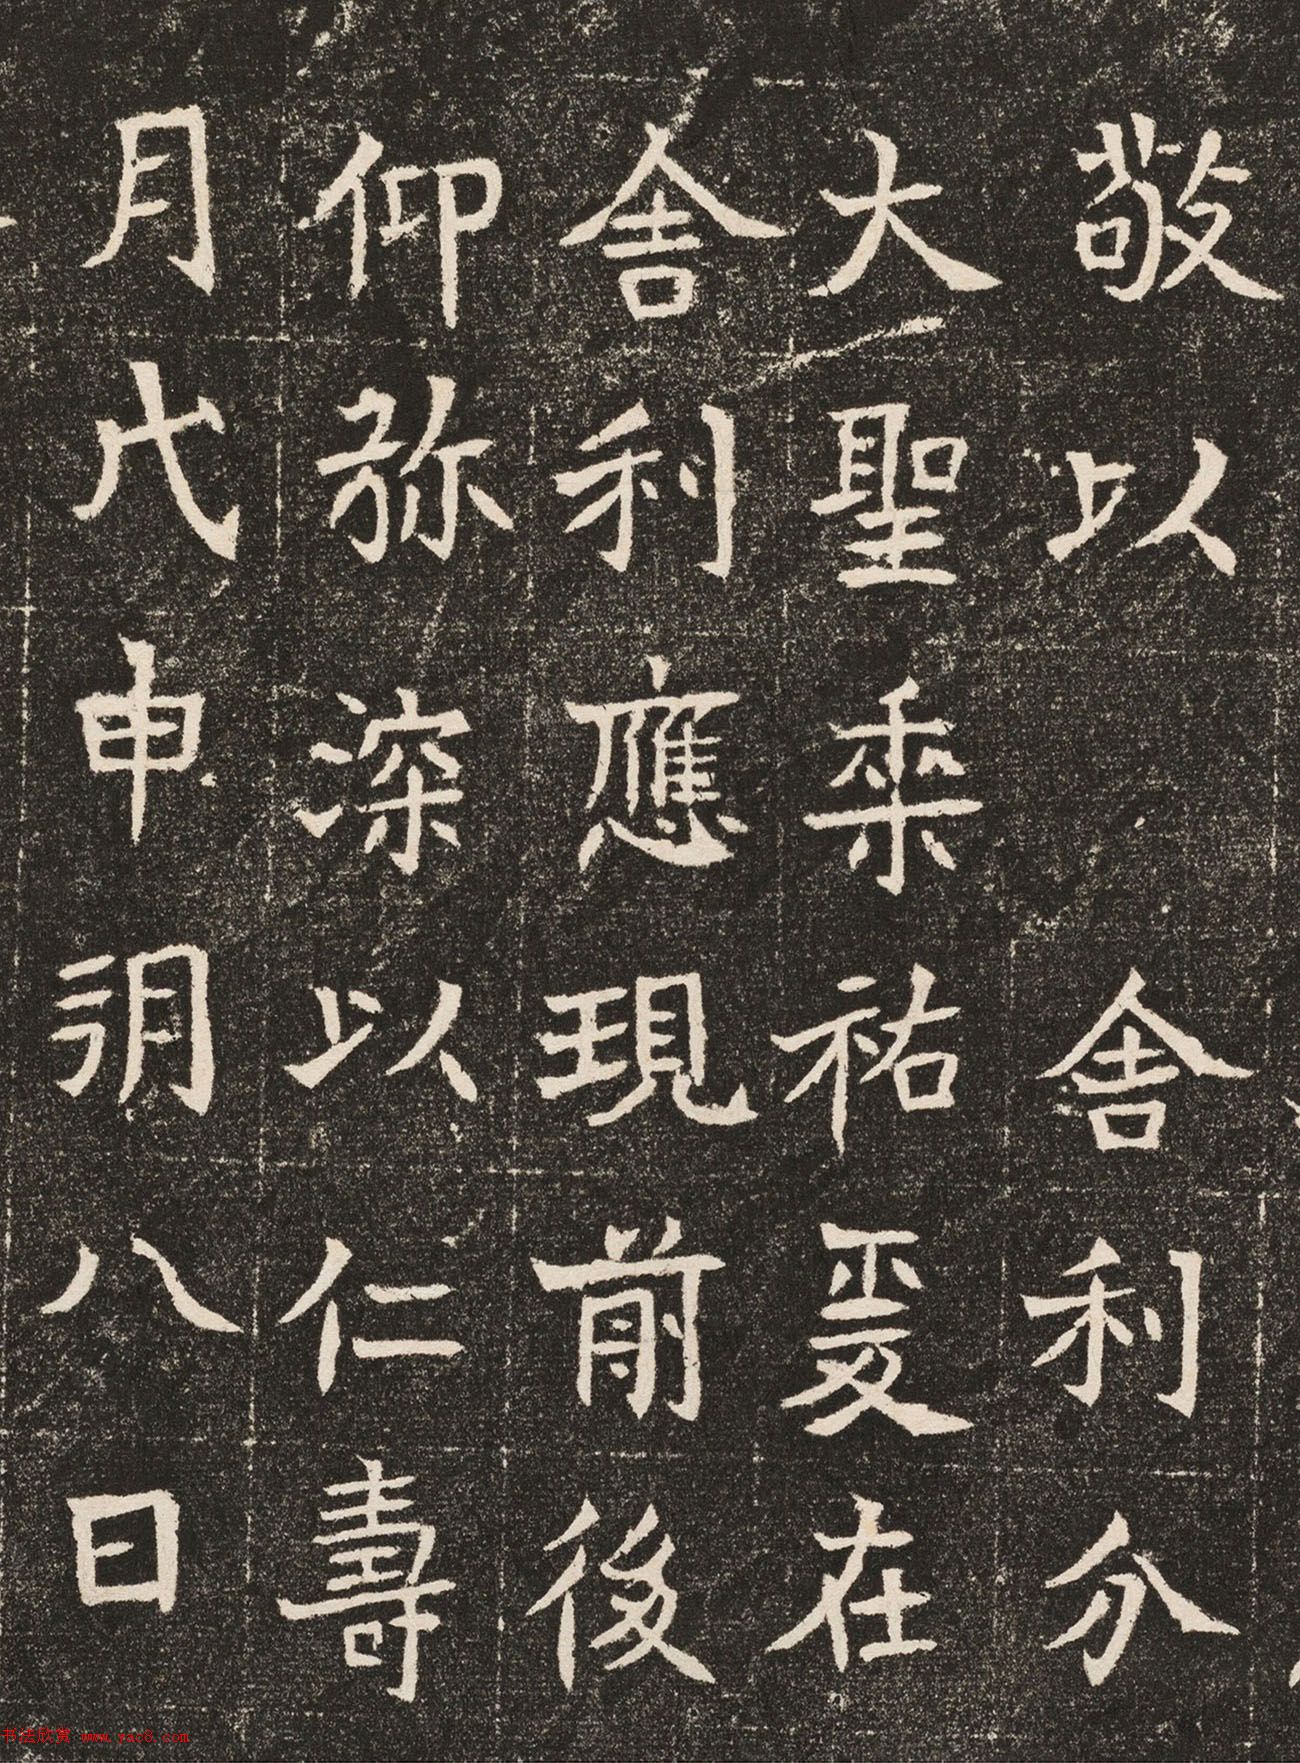 敬以　舍利分
大聖乘祐爰在
舍利應現前後
仰弥深以仁壽
月戊申朔八日
书法欣赏 www.yac8.com